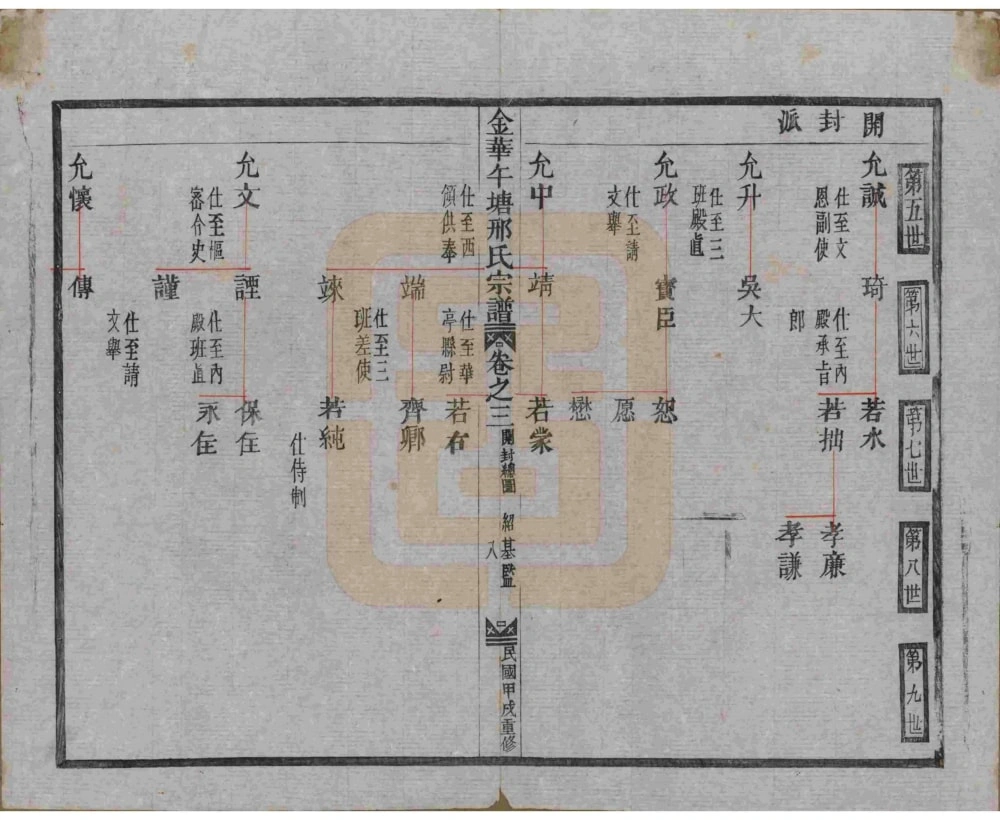 開封派
第五世
第六世
第七世
第八世
第九世
允誠
仕至文
思副使
琦
仕至內
殿承旨
郎
若水
若拙
孝廉
孝謙
允升
仕至三
班殿直
吳大
允政
仕至請
文舉
寶臣
恕
愿
懋
允中
靖
若裳
金華午塘邢氏宗譜
卷之三
開封總圖
紹基監
八
民國甲戌重修
仕至西
頭供奉
仕至華
亭縣尉
若谷
端
齊卿
仕至三
班差使
竦
若純
仕侍制
允文
仕至樞
密介史
諲
仕至內
殿班直
保在
永在
謹
允懷
傳
仕至請
文舉